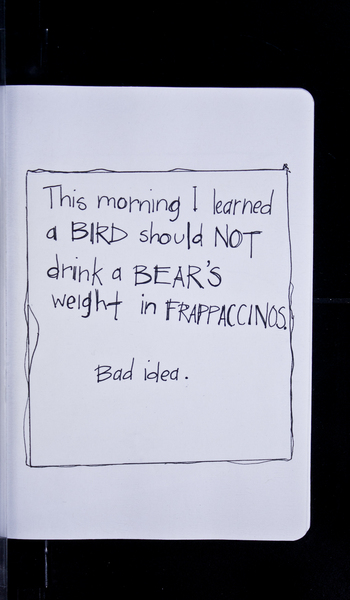 This morning I learned
a BIRD should NOT
drink a BEAR'S
weight in FRAPPACCINOS.
Bad idea.